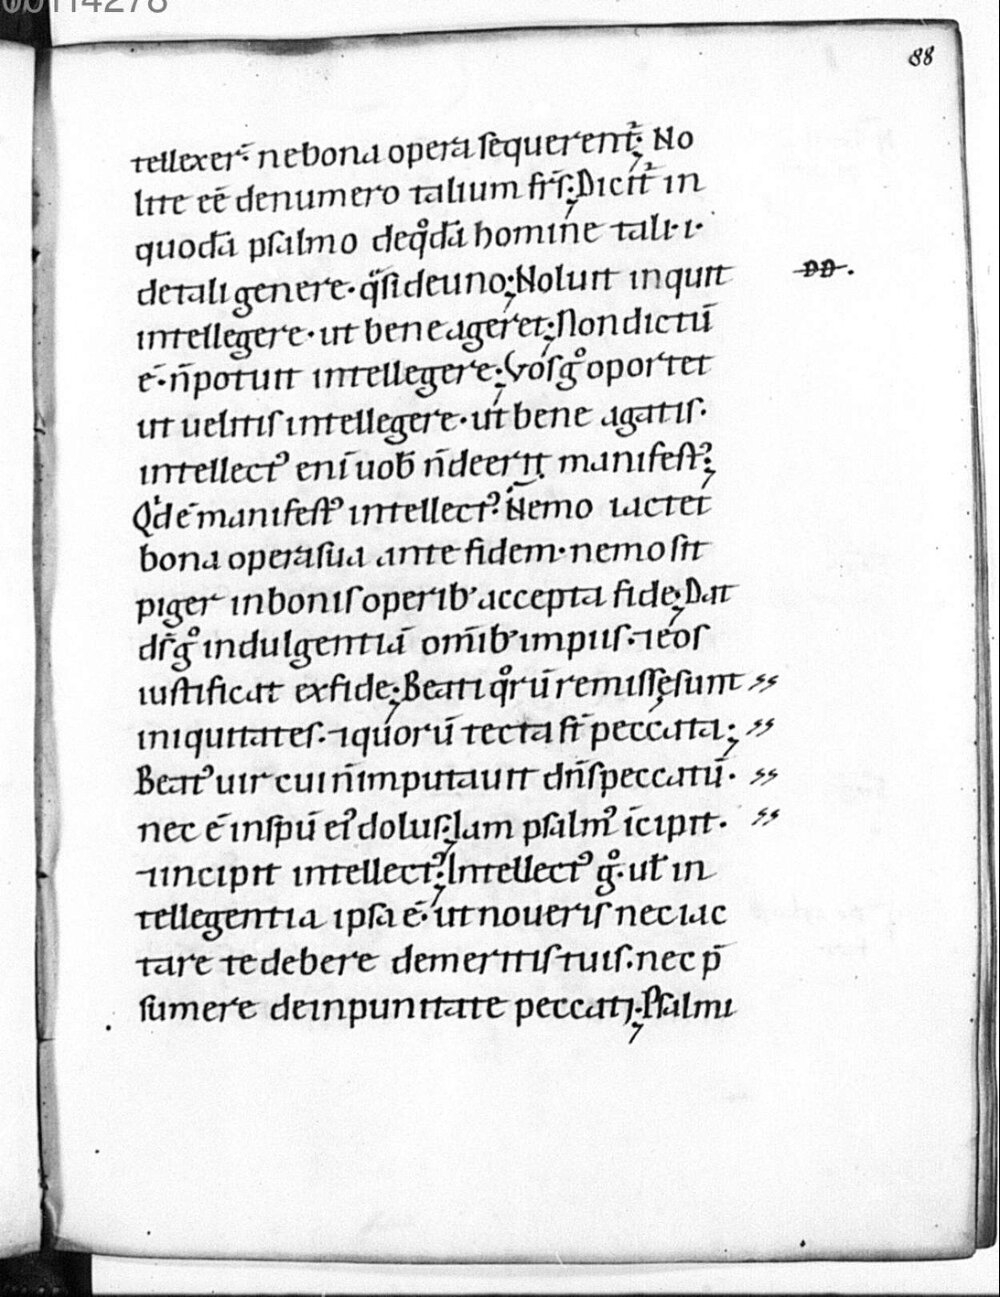 88
tellexer̄· ne bona opera sequerent᷑; No
lite eē de numero talium fr̄s; Dicit᷑ in
quodā psalmo de qͦdā homine tali·i·
de tali genere· q̈si de uno; Noluit inquit
intellegere· ut bene ageret; Non dictū
ē· n̄ potuit intellegere; Vos gͦ oportet
ut uelitis intellegere· ut bene agatis·
intellectꝰ eni uob̄ n̄ deerit manifestꝰ;
Qd ē manifestꝰ intellectꝰ? Nemo iactet
bona opera sua ante fidem· nemo sit
piger in bonis operibꝰ accepta fide; Dat
ds̄ gͦ indulgentiā om̄ibꝰ impiis· ⁊ eos
iustificat ex fide; Beati qͦrū remissę sunt
iniquitates· ⁊ quorū tecta st̄ peccata;
Beatꝰ uir cui n̄ imputauit dn̄s peccatū·
nec ē in spū eiꝰ dolus; Iam psalmꝰ īcipit·
⁊ incipit intellectꝰ; Intellectꝰ gͦ· ut in
tellegentia ipsa ē· ut noueris nec iac
tare te debere de meritis tuis· nec p̄
sumere de inpunitate peccati; Psalmi